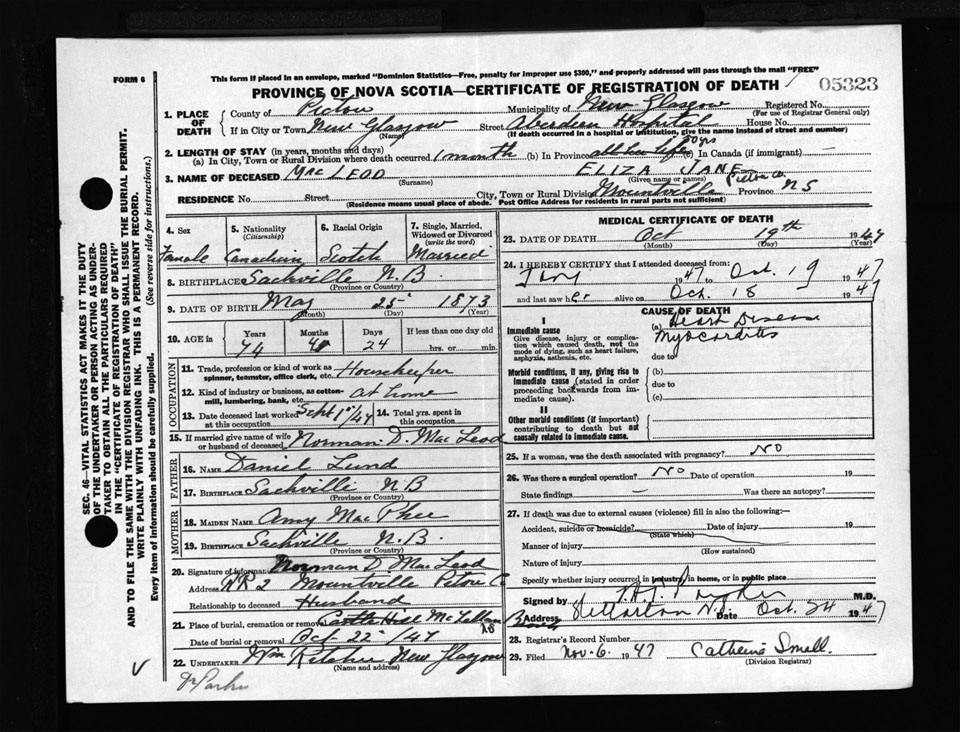 FORM 6
This form if placed in an envelope, marked "Dominion Statistics—Free, penalty for improper use $300," and properly addressed will pass through the mail "FREE"
PROVINCE OF NOVA SCOTIA—CERTIFICATE OF REGISTRATION OF DEATH
05323
1. PLACE OF DEATH
County of Pictou Municipality of New Glasgow Registered No.
(For use of Registrar General only)
If in City or Town New Glasgow (Name) Street Aberdeen Hospital House No.
(If death occurred in a hospital or institution, give the name instead of street and number)
2. LENGTH OF STAY (in years, months and days)
(a) In City, Town or Rural Division where death occurred 1 month (b) In Province all her life 50 yrs (c) In Canada (if immigrant) —
3. NAME OF DECEASED MAC LEOD (Surname) ELIZA JANE (Given name or names)
RESIDENCE No. Street City, Town or Rural Division Mountville Pictou Co. Province NS
(Residence means usual place of abode. Post Office Address for residents in rural parts not sufficient)
4. Sex Female
5. Nationality (Citizenship) Canadian
6. Racial Origin Scotch
7. Single, Married, Widowed or Divorced (write the word) Married
8. BIRTHPLACE Sackville N.B. (Province or Country)
9. DATE OF BIRTH May (Month) 25 (Day) 1873 (Year)
10. AGE in Years 74 Months 4 Days 24 If less than one day old hrs. or min.
OCCUPATION
11. Trade, profession or kind of work as spinner, teamster, office clerk, etc. Housekeeper
12. Kind of industry or business, as cotton-mill, lumbering, bank, etc. at home
13. Date deceased last worked at this occupation Sept 1st/47 14. Total yrs. spent in this occupation
15. If married give name of wife or husband of deceased Norman D. Mac Leod
FATHER
16. Name Daniel Lund
17. Birthplace Sackville N B (Province or Country)
MOTHER
18. Maiden Name Amy Mac Phee
19. Birthplace Sackville N.B. (Province or Country)
20. Signature of informant Norman D. Mac Leod
Address RR 2 Mountville Pictou Co
Relationship to deceased Husband
21. Place of burial, cremation or removal Castle Hill
Date of burial or removal Oct 22 /47
22. UNDERTAKER Wm Ritchie New Glasgow
(Name and address)
MEDICAL CERTIFICATE OF DEATH
23. DATE OF DEATH Oct (Month) 19th (Day) 1947 (Year)
24. I HEREBY CERTIFY that I attended deceased from:
1947 Oct. 19 1947
and last saw her alive on Oct. 18 1947
CAUSE OF DEATH
I
Immediate cause
Give disease, injury or complication which caused death, not the mode of dying, such as heart failure, asphyxia, asthenia, etc.
(a) Heart Disease
Myocarditis
due to
Morbid conditions, if any, giving rise to immediate cause (stated in order proceeding backwards from immediate cause).
(b)
due to
(c)
II
Other morbid conditions (if important) contributing to death but not causally related to immediate cause.
25. If a woman, was the death associated with pregnancy? NO
26. Was there a surgical operation? NO Date of operation 19
State findings — Was there an autopsy?
27. If death was due to external causes (violence) fill in also the following:—
Accident, suicide or homicide? (State which) Date of injury 19
Manner of injury (How sustained)
Nature of injury
Specify whether injury occurred in industry, in home, or in public place
Signed by M.D.
Address Stellarton N.S. Date Oct. 24 1947
28. Registrar's Record Number
29. Filed Nov. 6. 1947 Catherine Small.
(Division Registrar)
SEC. 46—VITAL STATISTICS ACT MAKES IT THE DUTY
OF THE UNDERTAKER OR PERSON ACTING AS UNDER-
TAKER TO OBTAIN ALL THE PARTICULARS REQUIRED
IN THE "CERTIFICATE OF REGISTRATION OF DEATH"
AND TO FILE THE SAME WITH THE DIVISION REGISTRAR WHO SHALL ISSUE THE BURIAL PERMIT.
WRITE PLAINLY WITH UNFADING INK. THIS IS A PERMANENT RECORD.
Every item of information should be carefully supplied. (See reverse side for instructions.)